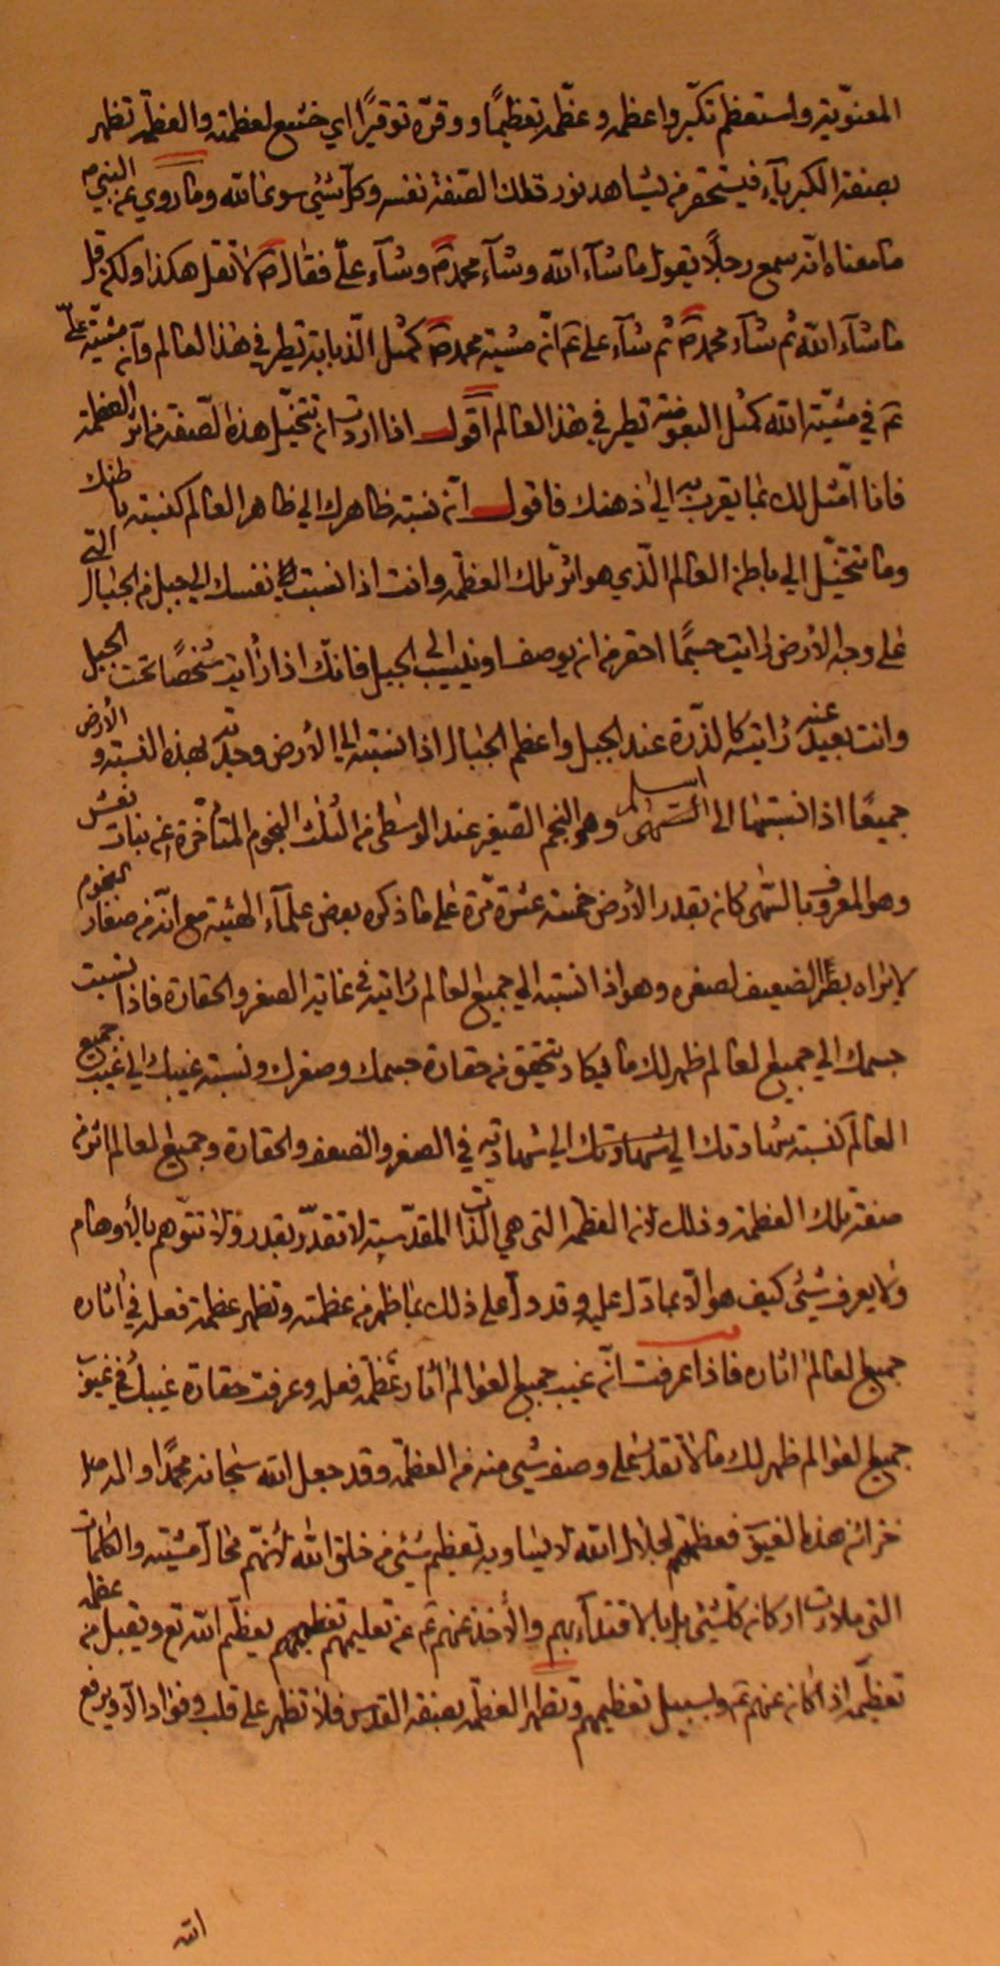 المعنويّة واستعظم تكبّر واعظمه وعظّمه تعظيمًا ووقّره توقيرًا اي خشع لعظمته والعظمة تظهر
بصفة الكبرياء فيستحقر من يشاهد نور تلك الصفة نفسه وكلّ شئ سوى الله وما روي عن النبي ص
ما معناه انه سمع رجلًا يقول ما شآء الله وشآء محمد ص وشآء عليّ فقال ص لا تقل هكذا ولكن قل
ما شآء الله ثم شآء محمد ص ثم شآء علي ع انّ مشية محمد ص كمثل الذبابة تطير في هذا العالم وانّ مشيّة عليّ
ع في مشيّة الله كمثل البعوضة تطير في هذا العالم اقول اذا اردت ان تتخيّل هذه الصفة من اثر العظمة
فانا امثل لك بما يقرب به الى ذهنك فاقول انّ نسبة ظاهرك الي ظاهر العالم كنسبة باطنك
وما تتخيّل الي باطن العالم الّذي هو اثر تلك العظمة وانت اذا نسبت نفسك الي جبل من الجبال التي
على وجه الأرض رايت جسمًا احقر من ان يوصف او ينسب الى الجبل فانّك اذا رأيت شخصًا تحت الجبل
وانت بعيد عنه رايته كالذّرة عند الجبل واعظم الجبال اذا نسبته الي الأرض وجدته بهذه النسبة والأرض
جميعًا اذا نسبتها الى السّهى اسلم وهو النجم الصّغير عند الوسطى من الثلث النجوم المتأخرة من بنات نعش
وهو المعروف بالسّهى كان بقدر الأرض خمسة عشرة مرّة على ما ذكره بعض علمآء الهيئة مع انّه من صغار النجوم
لا يراه بصر الضعيف لصغره وهو اذا نسبته الي جميع العالم رايته في غاية الصغر والحقارة فاذا نسبت
جسمك الي جميع العالم ظهر لك ما يكاد يتحقق من حقارة جسمك وصغرك ونسبة غيبك الي غيب جميع
العالم كنسبة شهادتك الي شهادته في الصغر والضعف والحقارة وجميع العالم اثر من
صفة تلك العظمة وذلك لان العظمة التى هي الذات المقدّسة لا تقدّر بقدر ولا تتوهم بالأوهام
ولا يعرف شئ كيف هو الّا بما دلّ عليه وقد دلّ على ذلك بما ظهر من عظمته وتظهر عظمة فعله في اثاره
جميع العالم اثاره فاذا عرفت انّ غيب جميع العوالم اثار عظمة فعله وعرفت حقارة غيبك في غيوب
جميع العوالم ظهر لك ما لا تقدر على وصف شئ منه من العظمة وقد جعل الله سبحانه محمدًا واله ص
خزائن هذه الغيوب فعظمتهم لجلال الله لا يساويه تعظيم شئ من خلق الله لأنهم محال مشيته والكلمات
التى ملأت اركان كل شئ بل بالاقتدآء بهم والأخذ عنهم ع عن تعليمهم تعظيمهم يعظّم الله تع ويقبل من عظمه
تعظيمه اذا كان عنهم ع وبسبيل تعظيمهم وتظهر العظمة بصفة القدس فلا تظهر على قلب وفؤاد الّا ويرفع
الله